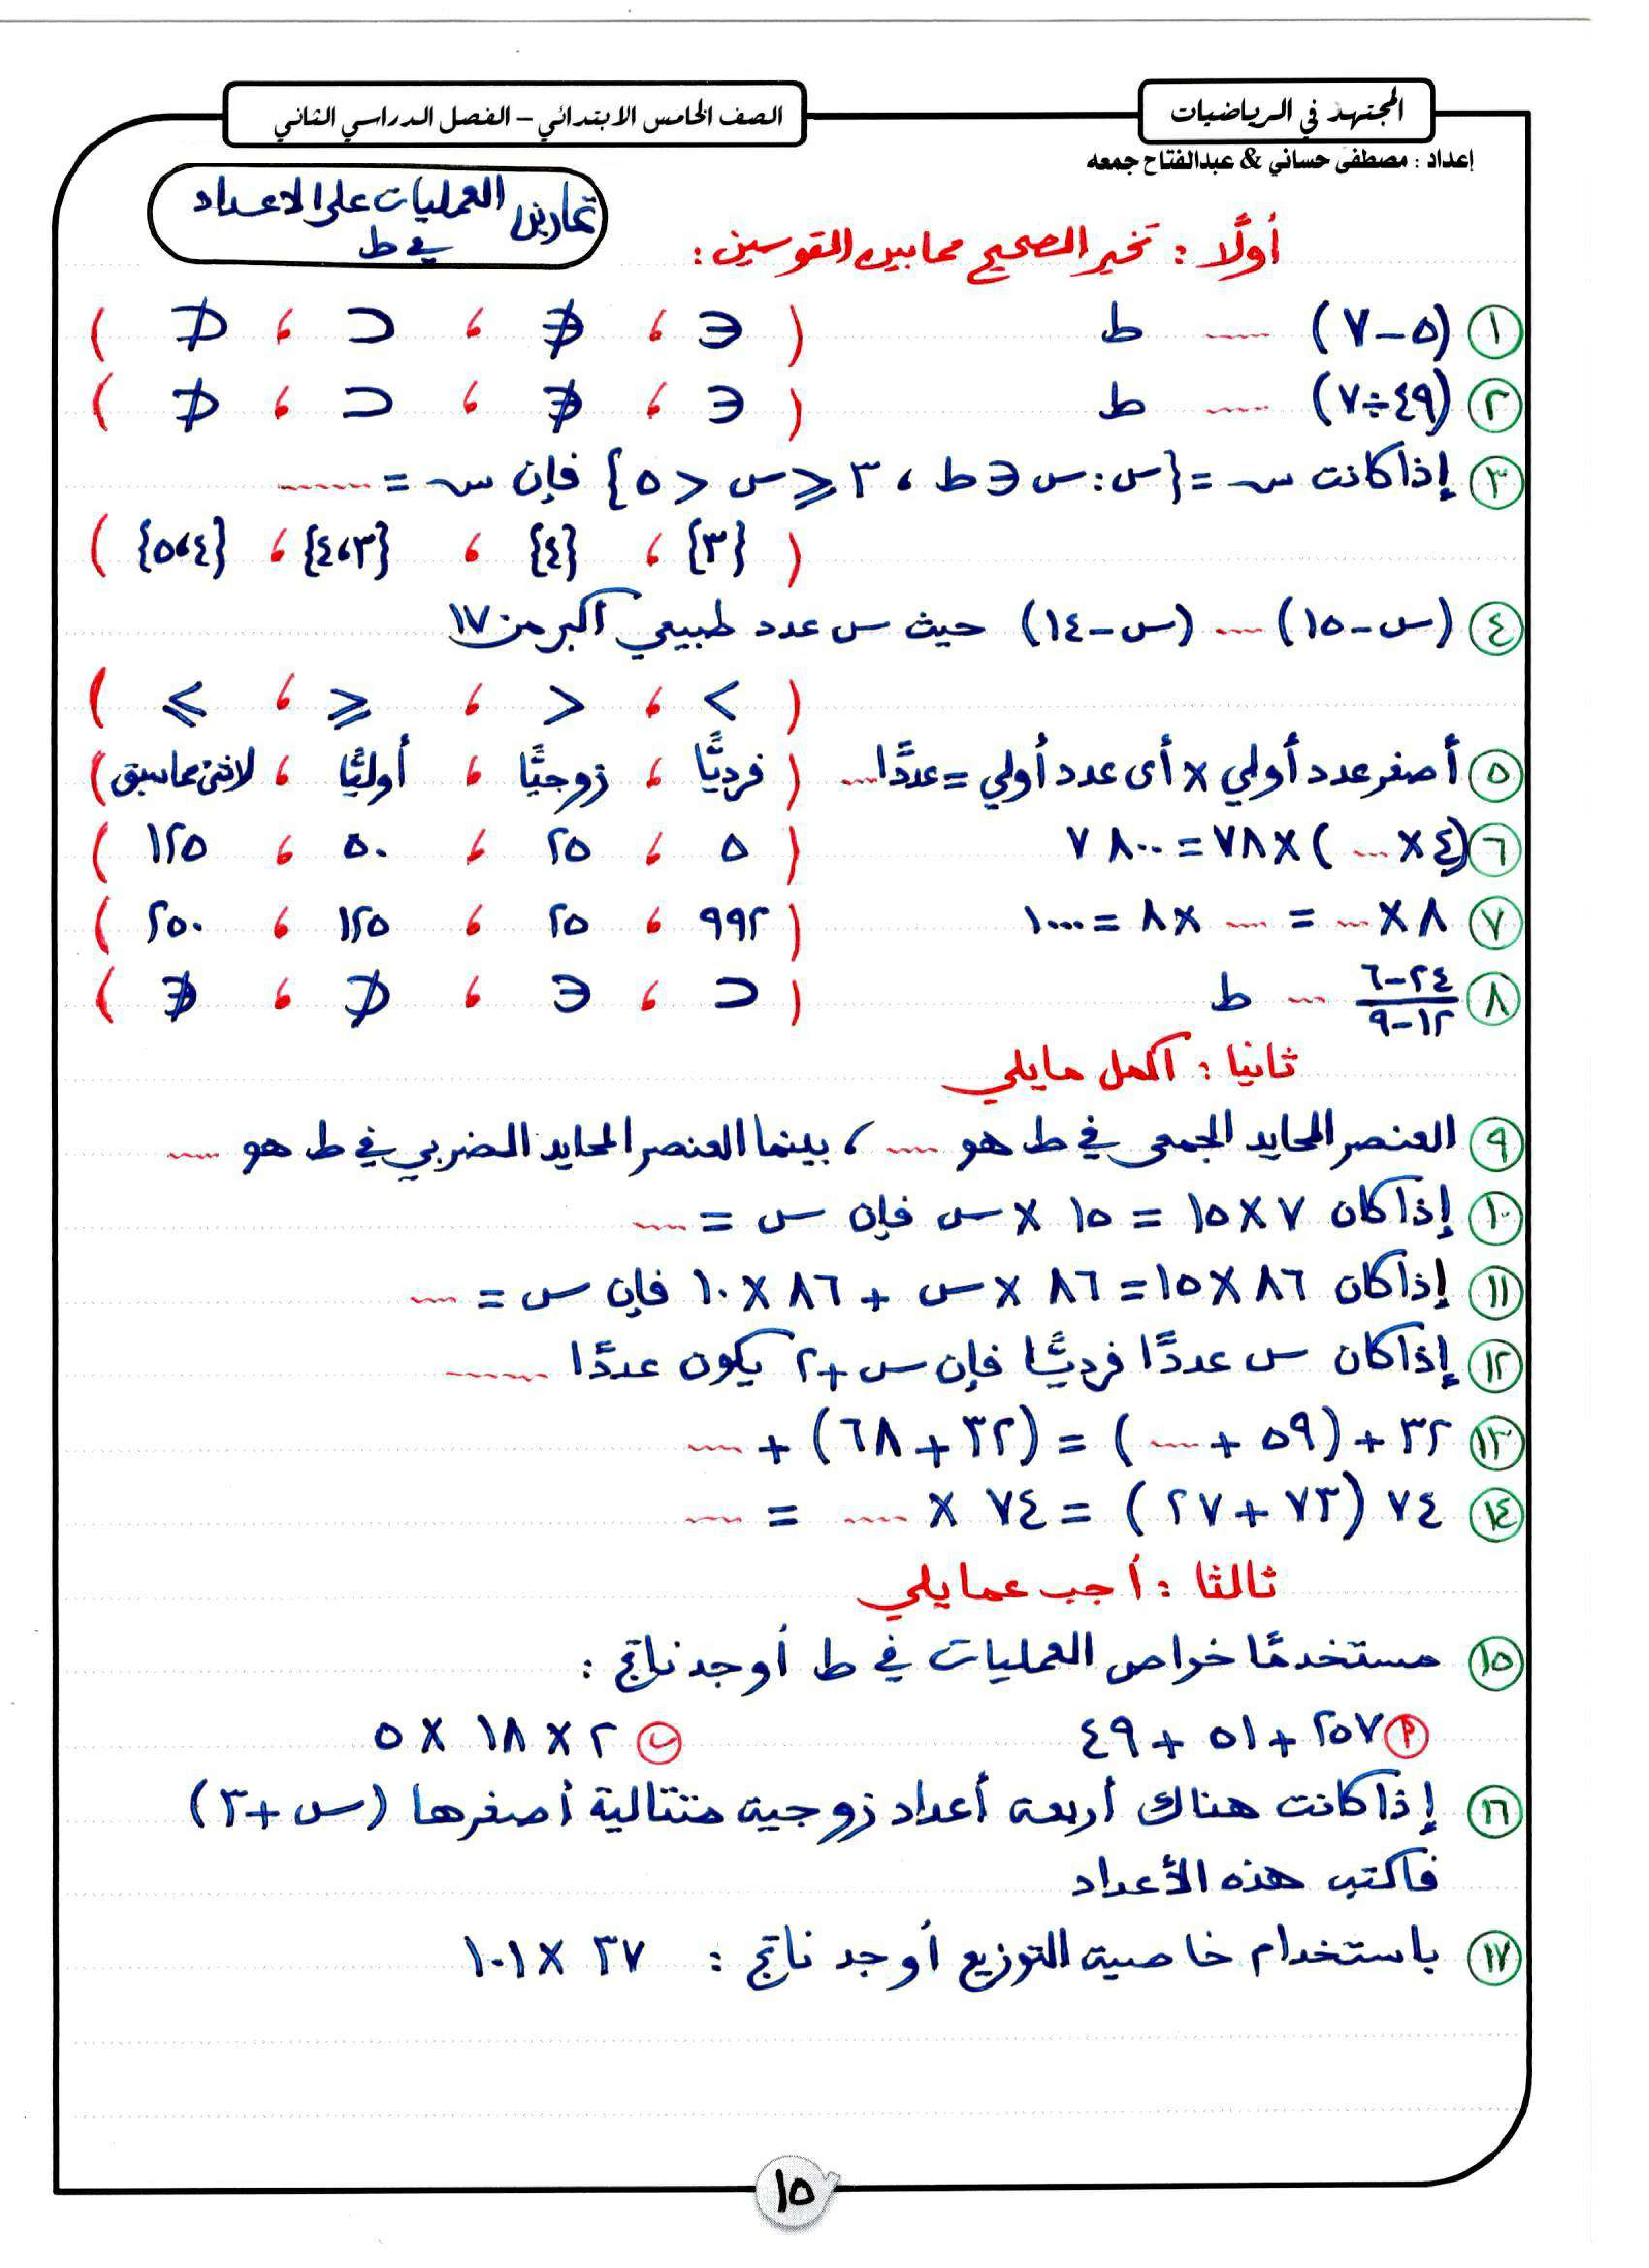 المجتهد في الرياضيات
الصف الخامس الابتدائي – الفصل الدراسي الثاني
إعداد : مصطفى حساني & عبدالفتاح جمعه
تمارين العمليات على الاعداد
في ط
أولًا : تخير الصحيح مما بين القوسين :
١ (٥ – ٧) ..... ط ( ∈ ، ∉ ، ⊂ ، ⊄ )
٢ (٤٩ ÷ ٧) ..... ط ( ∈ ، ∉ ، ⊂ ، ⊄ )
٣ إذا كانت س = {س : س ∈ ط ، ٣ ≤ س < ٥} فإن س = .......
( {٣} ، {٤} ، {٣،٤} ، {٤،٥} )
٤ (س – ١٥) ..... (س – ١٤) حيث س عدد طبيعي أكبر من ١٧
( > ، < ، ⩽ ، ⩾ )
٥ أصغر عدد أولي × أى عدد أولي = عددًا .... ( فرديًّا ، زوجيًّا ، أوليًّا ، لاشئ مماسبق )
٦ (٤ × ....) × ٧٨ = ٧٨٠٠ ( ٥ ، ٢٥ ، ٥٠ ، ١٢٥ )
٧ ٨ × .... = .... × ٨ = ١٠٠٠ ( ٩٩٢ ، ٢٥ ، ١٢٥ ، ٢٥٠ )
٨ (٢٤ – ٦) / (١٢ – ٩) .... ط ( ⊂ ، ∈ ، ⊄ ، ∉ )
ثانيا : اكمل مايلي
٩ العنصر المحايد الجمعى في ط هو ..... ، بينما العنصر المحايد الضربي في ط هو .....
١٠ إذا كان ٧ × ١٥ = ١٥ × س فإن س = .....
١١ إذا كان ٨٦ × ١٥ = ٨٦ × س + ٨٦ × ١٠ فإن س = ....
١٢ إذا كان س عددًا فرديًّا فإن س + ٢ يكون عددًا .......
١٣ ٣٢ + (٥٩ + ....) = (٣٢ + ٦٨) + .....
١٤ ٧٤ (٧٣ + ٢٧) = ٧٤ × ..... = .....
ثالثا : أجب عما يلي
١٥ مستخدمًا خواص العمليات في ط أوجد ناتج :
أ ٢٥٧ + ٥١ + ٤٩ ب ٢ × ١٨ × ٥
١٦ إذا كانت هناك أربعة أعداد زوجية متتالية أصغرها (س + ٣)
فاكتب هذه الأعداد
١٧ باستخدام خاصية التوزيع أوجد ناتج : ٣٧ × ١٠١
١٥